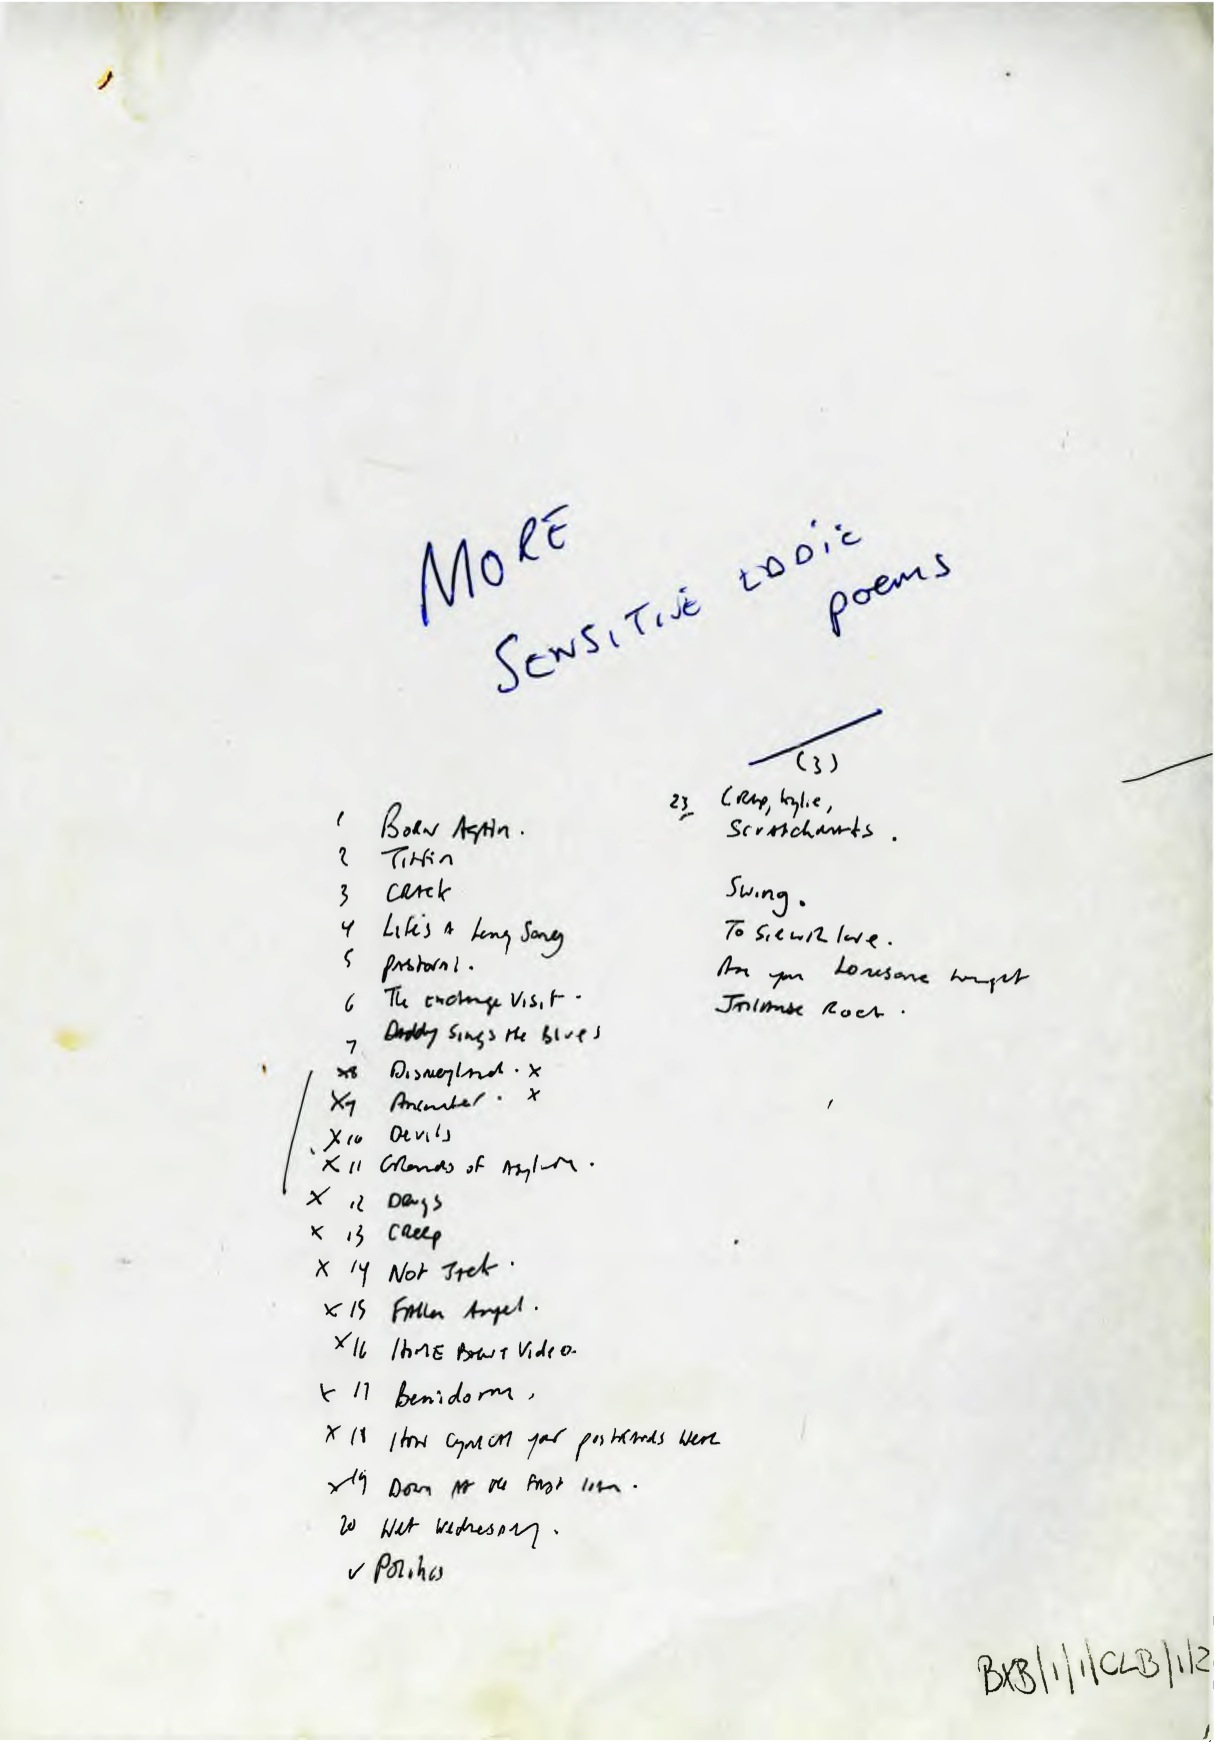 MORE
SENSITIVE EDDIE
poems
(3)
1 Born Again.
2 Tiffin
3 Crack
4 Life's a Long Song
5 pastoral.
6 The exchange Visit.
7 Daddy Sings the Blues
X8 Disneyland. X
X9 Anснober. X
X10 Devils
X 11 Grounds of Asylum.
X 12 Drugs
X 13 Creep
X 14 Not Jack.
X 15 Fallen Angel.
X 16 HOME Video.
X 17 Benidorm.
X 18 How cynical your postcards were
X 19 Down at the First.
20 Wet Wednesday.
✓ Politics
23 Crap, Kylie,
Scratchcards.
Swing.
To Sir with love.
Are you Lonesome tonight
Jailhouse Rock.
BXB/1/1/CLB/1/2